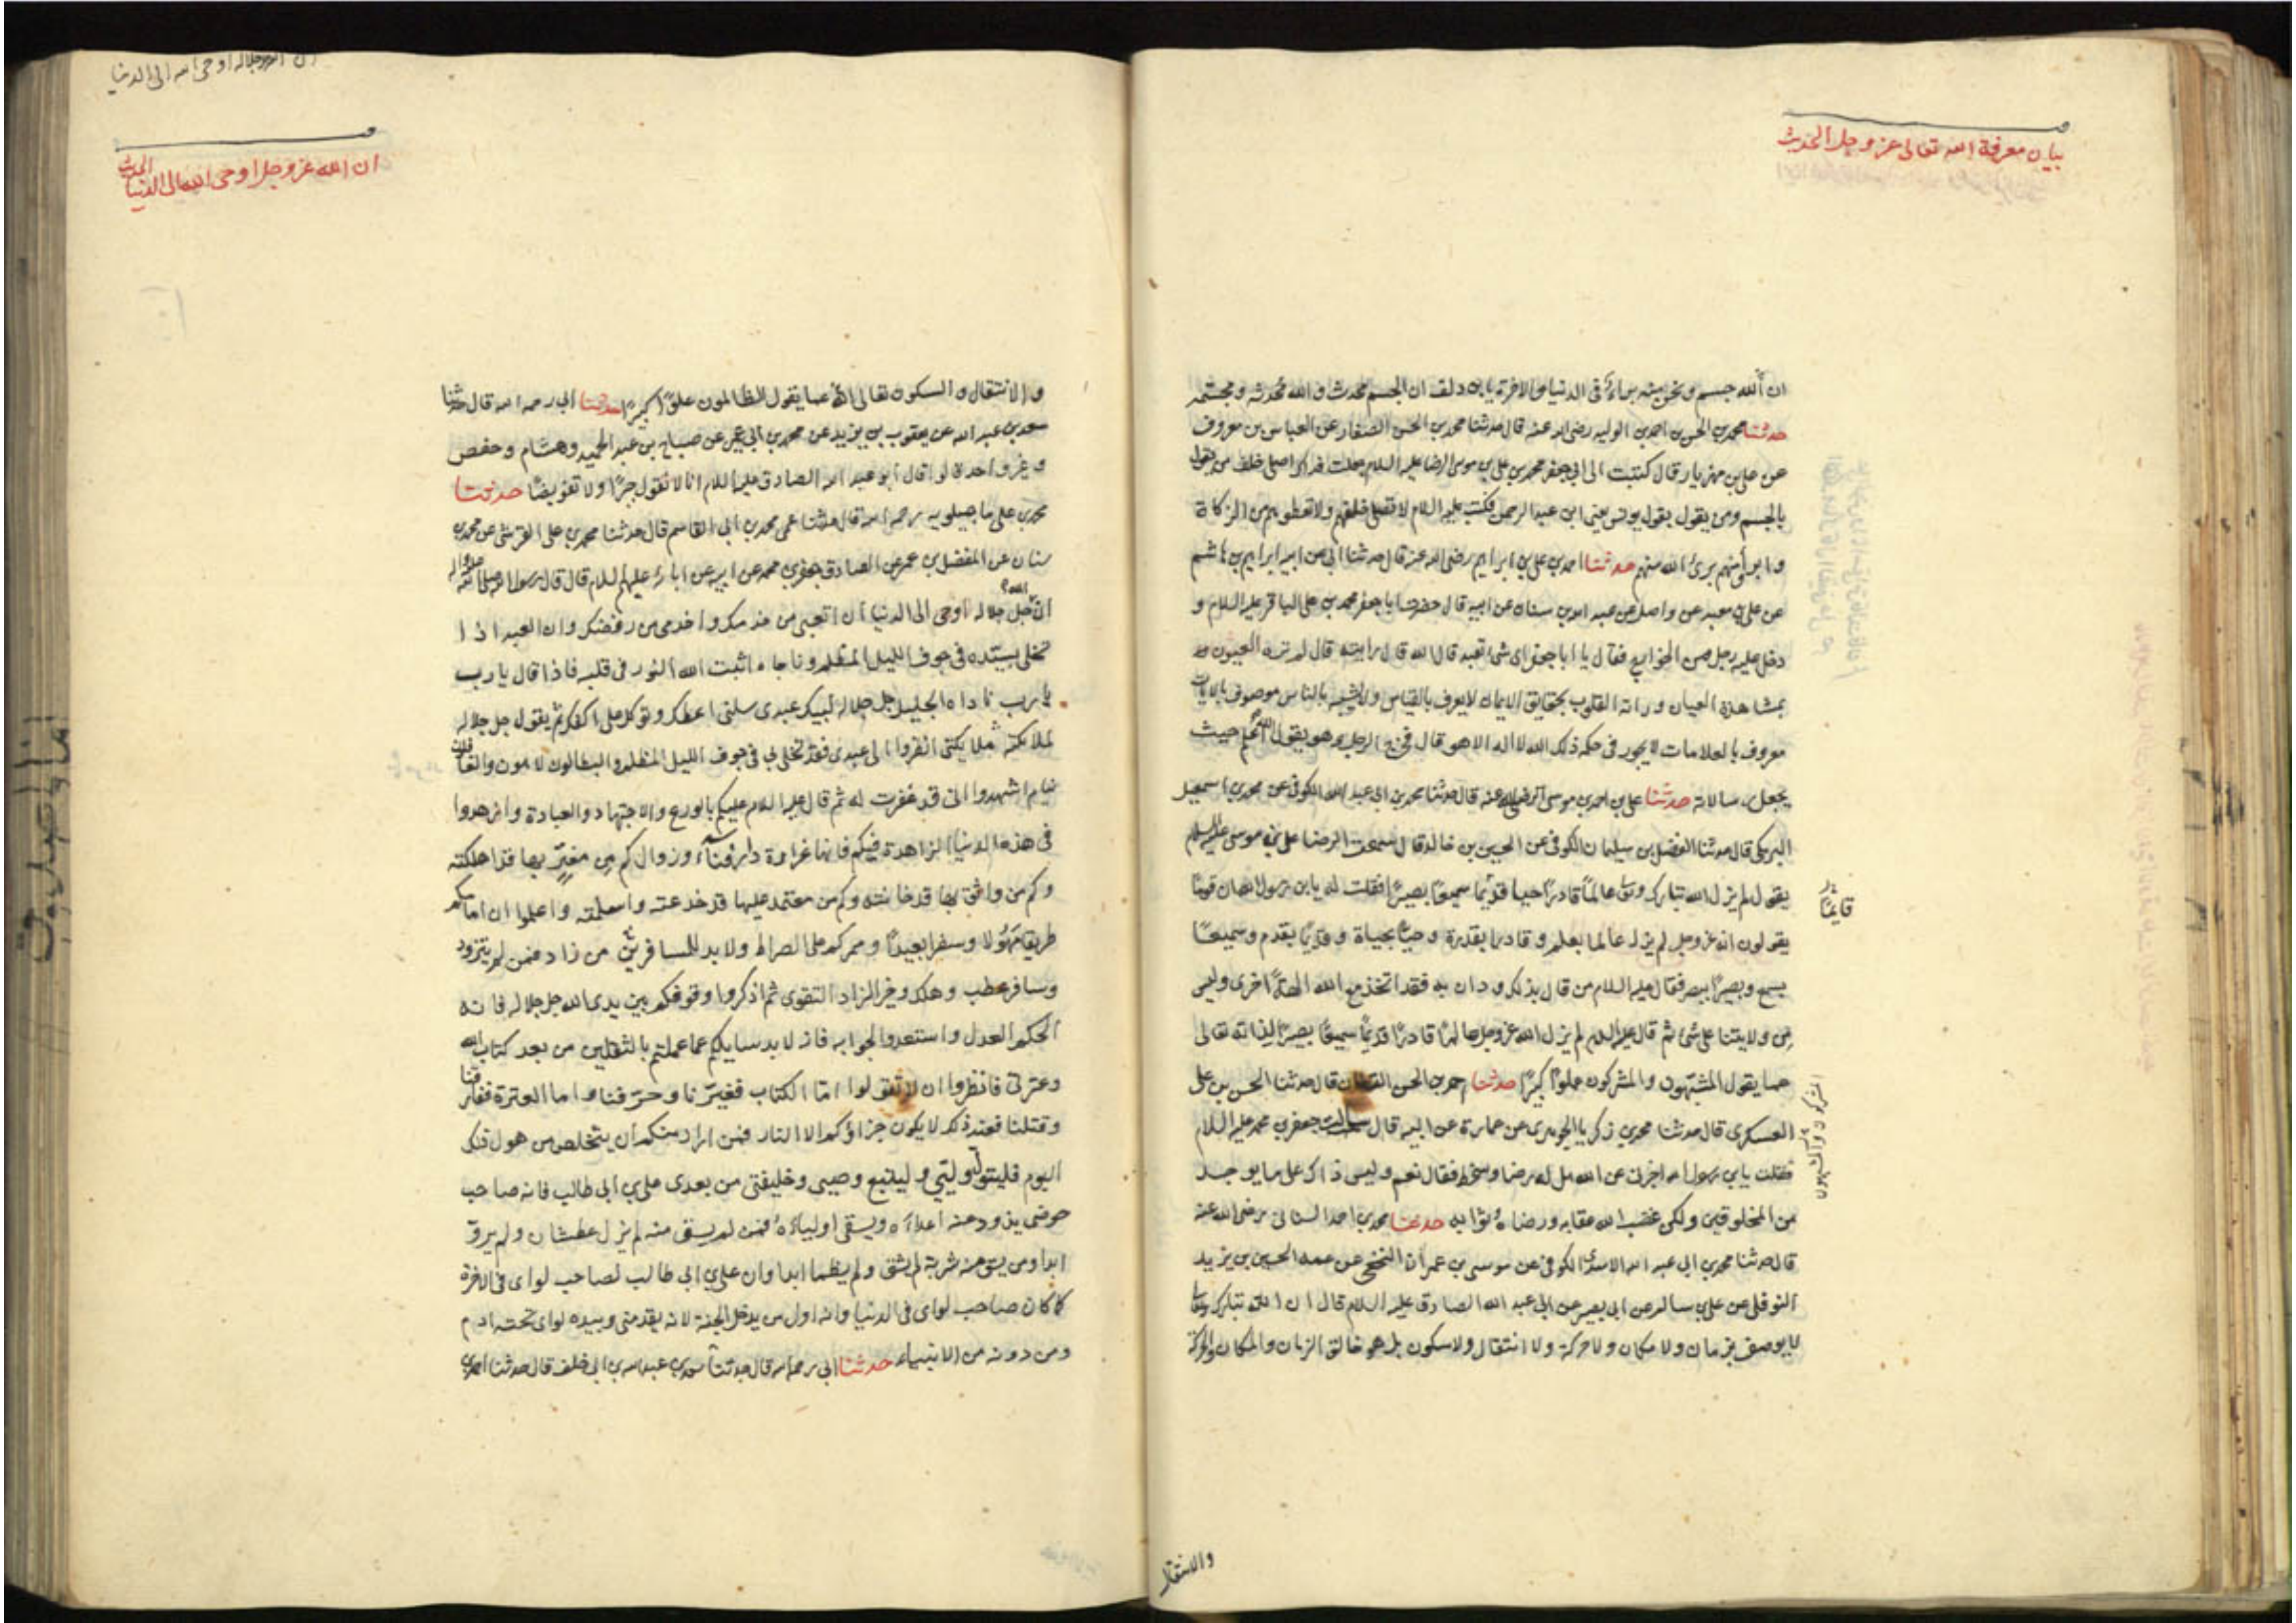 بيان معرفة الله تعالى عز وجل الحديث
ان الله جسم ونحن منه براء في الدنيا والاخرة يا بن دلف ان الجسم محدث والله محدثه ومجسمه
حدثنا محمد بن الحسن بن احمد بن الوليد رضى الله عنه قال حدثنا محمد بن الحسن الصفار عن العباس بن معروف
عن علي بن مهزيار قال كتبت الى ابي جعفر محمد بن علي بن موسى الرضا عليه السلام جعلت فداك اصلى خلف من يقول
بالجسم ومن يقول بقول يونس يعنى ابن عبد الرحمن فكتب عليه السلام لا تصلوا خلفهم ولا تعطوهم من الزكاة
وابرأوا منهم برئ الله منهم حدثنا احمد بن علي بن ابراهيم رضى الله عنه قال حدثنا ابي عن ابيه ابراهيم بن هاشم
عن علي بن معبد عن واصل عن عبد الله بن سنان عن ابيه قال حضرت ابا جعفر محمد بن علي الباقر عليه السلام و
دخل عليه رجل من الخوارج فقال يا ابا جعفر اى شئ تعبد قال الله قال رايته قال لم تره العيون
بمشاهدة العيان وراته القلوب بحقايق الايمان لا يعرف بالقياس ولا يشبه بالناس موصوف بالايات
معروف بالعلامات لا يجور فى حكمه ذلك الله لا اله الا هو قال فخرج الرجل وهو يقول الله اعلم حيث
يجعل رسالاته حدثنا علي بن احمد بن موسى رضى الله عنه قال حدثنا محمد بن ابي عبد الله الكوفى عن محمد بن اسمعيل
البرمكى قال حدثنا الفضل بن سليمان الكوفى عن الحسين بن خالد قال سمعت الرضا علي بن موسى عليه السلام
يقول لم يزل الله تبارك وتعالى عالمًا قادرًا حيا قديمًا سميعًا بصيرًا فقلت له يا بن رسول الله ان قومًا
يقولون انه عز وجل لم يزل عالما بعلم وقادرا بقدرة وحيًا بحياة وقديمًا بقدم وسميعًا
بسمع وبصيرًا ببصر فقال عليه السلام من قال بذلك ودان به فقد اتخذ مع الله الهة اخرى وليس
من ولايتنا على شئ ثم قال عليه السلام لم يزل الله عز وجل عالمًا قادرًا قديمًا سميعًا بصيرًا لذاته تعالى
عما يقول المشبهون والمشركون علوًا كبيرًا حدثنا احمد بن الحسن القطان قال حدثنا الحسن بن علي
العسكرى قال حدثنا محمد بن زكريا الجوهرى عن عمارة عن ابيه قال سالت جعفر بن محمد عليه السلام
فقلت يا بن رسول الله اخبرنى عن الله هل له رضا وسخط فقال نعم وليس ذاك على ما يوجد
من المخلوقين ولكن غضب الله عقابه ورضاه ثوابه حدثنا محمد بن احمد السنانى رضى الله عنه
قال حدثنا محمد بن ابي عبد الله الاسدى الكوفى عن موسى بن عمران النخعى عن عمه الحسين بن يزيد
النوفلى عن علي بن سالم عن ابي بصير عن ابي عبد الله الصادق عليه السلام قال ان الله تبارك وتعالى
لا يوصف بزمان ولا مكان ولا حركة ولا انتقال ولا سكون بل هو خالق الزمان والمكان والحركة
المشركون والمشبهون
والانتقال
ان الله عز وجل اوحى الله الى الدنيا الحديث
والانتقال والسكون تعالى الله عما يقول الظالمون علوًا كبيرًا حدثنا ابي رحمه الله قال حدثنا
سعد بن عبد الله عن يعقوب بن يزيد عن محمد بن ابي عمير عن صباح بن عبد الحميد وهشام وحفص
وغير واحد قالوا قال ابو عبد الله الصادق عليه السلام انا لا نقول جبرًا ولا تفويضًا حدثنا
محمد بن على ماجيلويه رحمه الله قال حدثنا عمى محمد بن ابى القاسم قال حدثنا محمد بن على القرشى عن محمد بن
سنان عن المفضل بن عمر عن الصادق جعفر بن محمد عن ابيه عن ابائه عليهم السلام قال قال رسول الله صلى الله عليه واله
ان الله جل جلاله اوحى الى الدنيا ان اتعبى من خدمك واخدمى من رفضك وان العبد اذا
تخلى بسيده فى جوف الليل المظلم وناجاه اثبت الله النور فى قلبه فاذا قال يا رب
يا رب ناداه الجليل جل جلاله لبيك عبدى سلنى اعطك وتوكل على اكفك ثم يقول جل جلاله
لملائكته ملائكتى انظروا الى عبدى فقد تخلى بى فى جوف الليل المظلم والبطالون لاهون والغافلون
نيام اشهدوا انى قد غفرت له ثم قال عليه السلام عليكم بالورع والاجتهاد والعبادة وازهدوا
فى هذه الدنيا الزاهدة فيكم فانها غرارة دار فناء وزوال كم من مغتر بها قد اهلكته
وكم من واثق بها قد خانته وكم من معتمد عليها قد خدعته واسلمته واعلموا ان امامكم
طريقا مهولا وسفرا بعيدًا وممركم على الصراط ولا بد للمسافر من زاد فمن لم يتزود
وسافر عطب وهلك وخير الزاد التقوى ثم اذكروا وقوفكم بين يدى الله جل جلاله فانه
الحكم العدل واستعدوا لجوابه فانه لا بد سايلكم عما عملتم بالثقلين من بعدى كتاب الله
وعترتى فانظروا ان لا تقولوا اما الكتاب فغيّرنا وحرّفنا واما العترة ففارقنا
وقتلنا فعند ذلك لا يكون جزاؤكم الا النار فمن اراد منكم ان يتخلص من هول ذلك
اليوم فليتول وليى وليتبع وصيى وخليفتى من بعدى على بن ابى طالب فانه صاحب
حوضى يذود عنه اعداءه ويسقى اولياءه فمن لم يسق منه لم يزل عطشان ولم يرو
ابدا ومن يسق منه شربة لم يشق ولم يظما ابدا وان علي بن ابى طالب لصاحب لواى فى الاخرة
كما كان صاحب لواى فى الدنيا وانه اول من يدخل الجنة لانه يقدمنى وبيده لواى تحته ادم
ومن دونه من الانبياء حدثنا ابى رحمه الله قال حدثنا سعد بن عبد الله بن ابى خلف قال حدثنا احمد بن